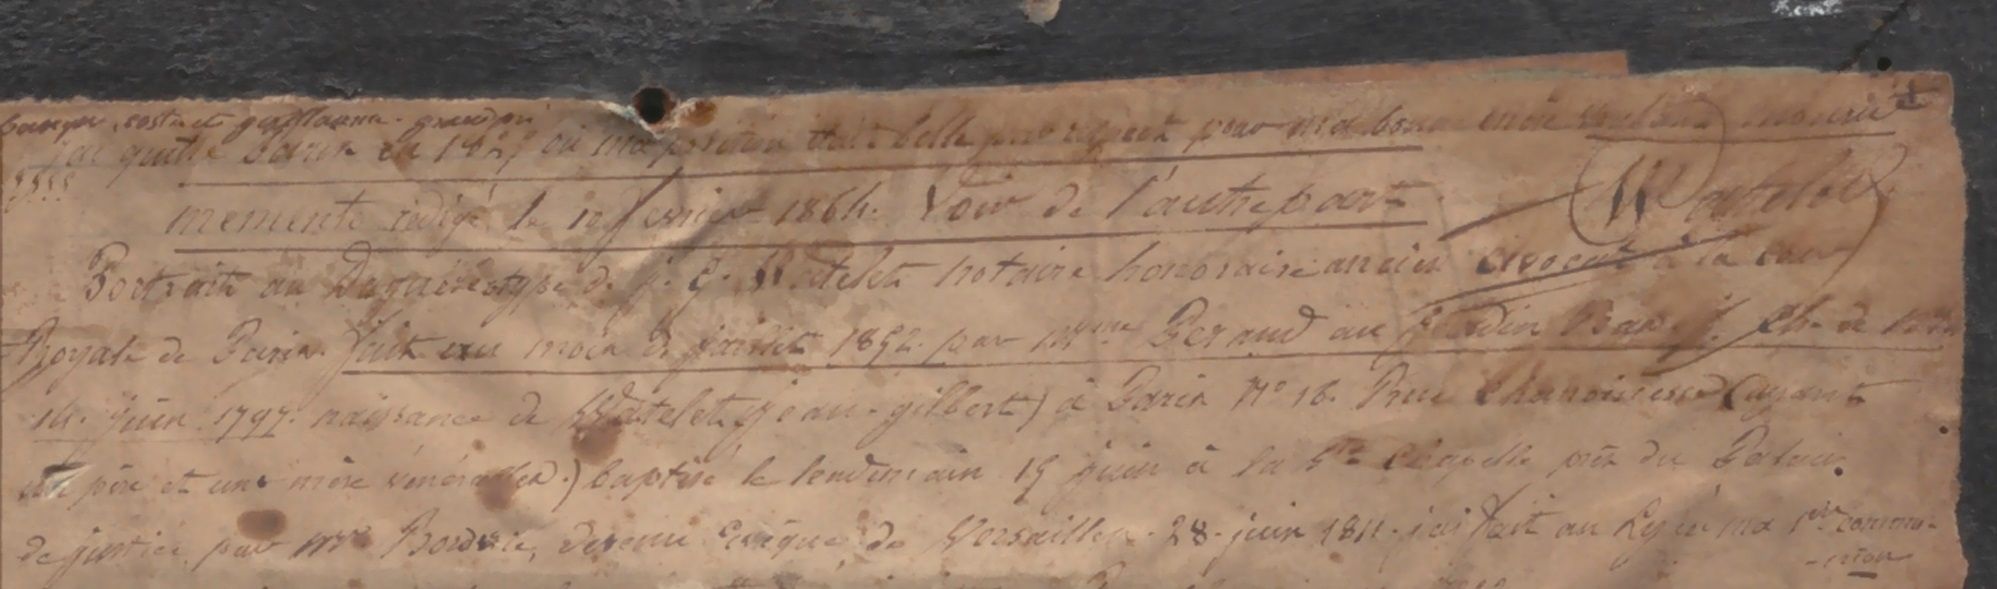 j'ai quitté Paris en 1827 où ma position était belle par respect pour ma bonne mère voulant mourir
memento rédigé le 10 fevrier 1864. Voir de l'autre part Watelet
Portrait au Daguereotype de j. g. Watelet notaire honoraire ancien avocat à la cour
Royale de Paris fait au mois de juillet 1852 par Mme Geraud au jardin
14. juin 1797. naissance de Watelet (jean-gilbert) à Paris No 16. Rue Chanoinesse (ayant
un père et une mère vénérables.) baptisé le lendemain 15 juin à la Ste Chapelle près du Palais
de justice par Mr Borderie, devenu Evêque de Versailles. 28. juin 1811. j'ai fait au Lycée ma 1ere commu-
-nion